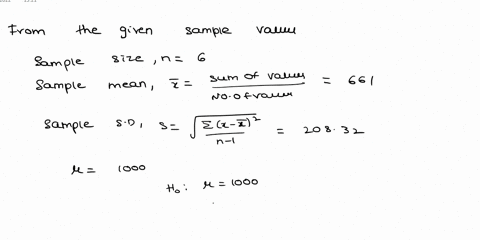 From the given sample value
Sample size, n = 6
Sample mean, x̄ = sum of value / No. of value = 661
Sample S.D, s = √(Σ(x-x̄)² / n-1) = 208.32
μ = 1000
H₀: μ = 1000